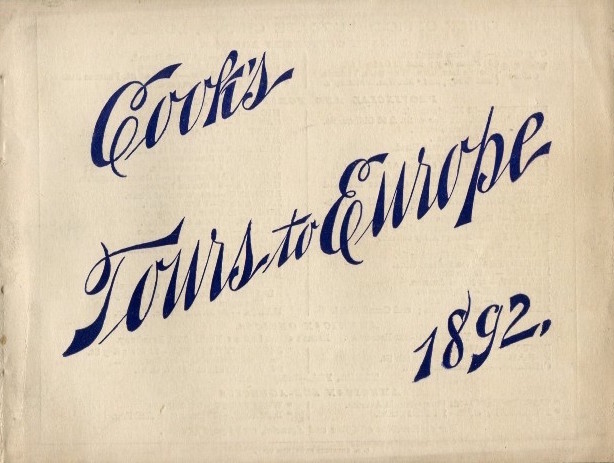 Cook's
Tours to Europe
1892.